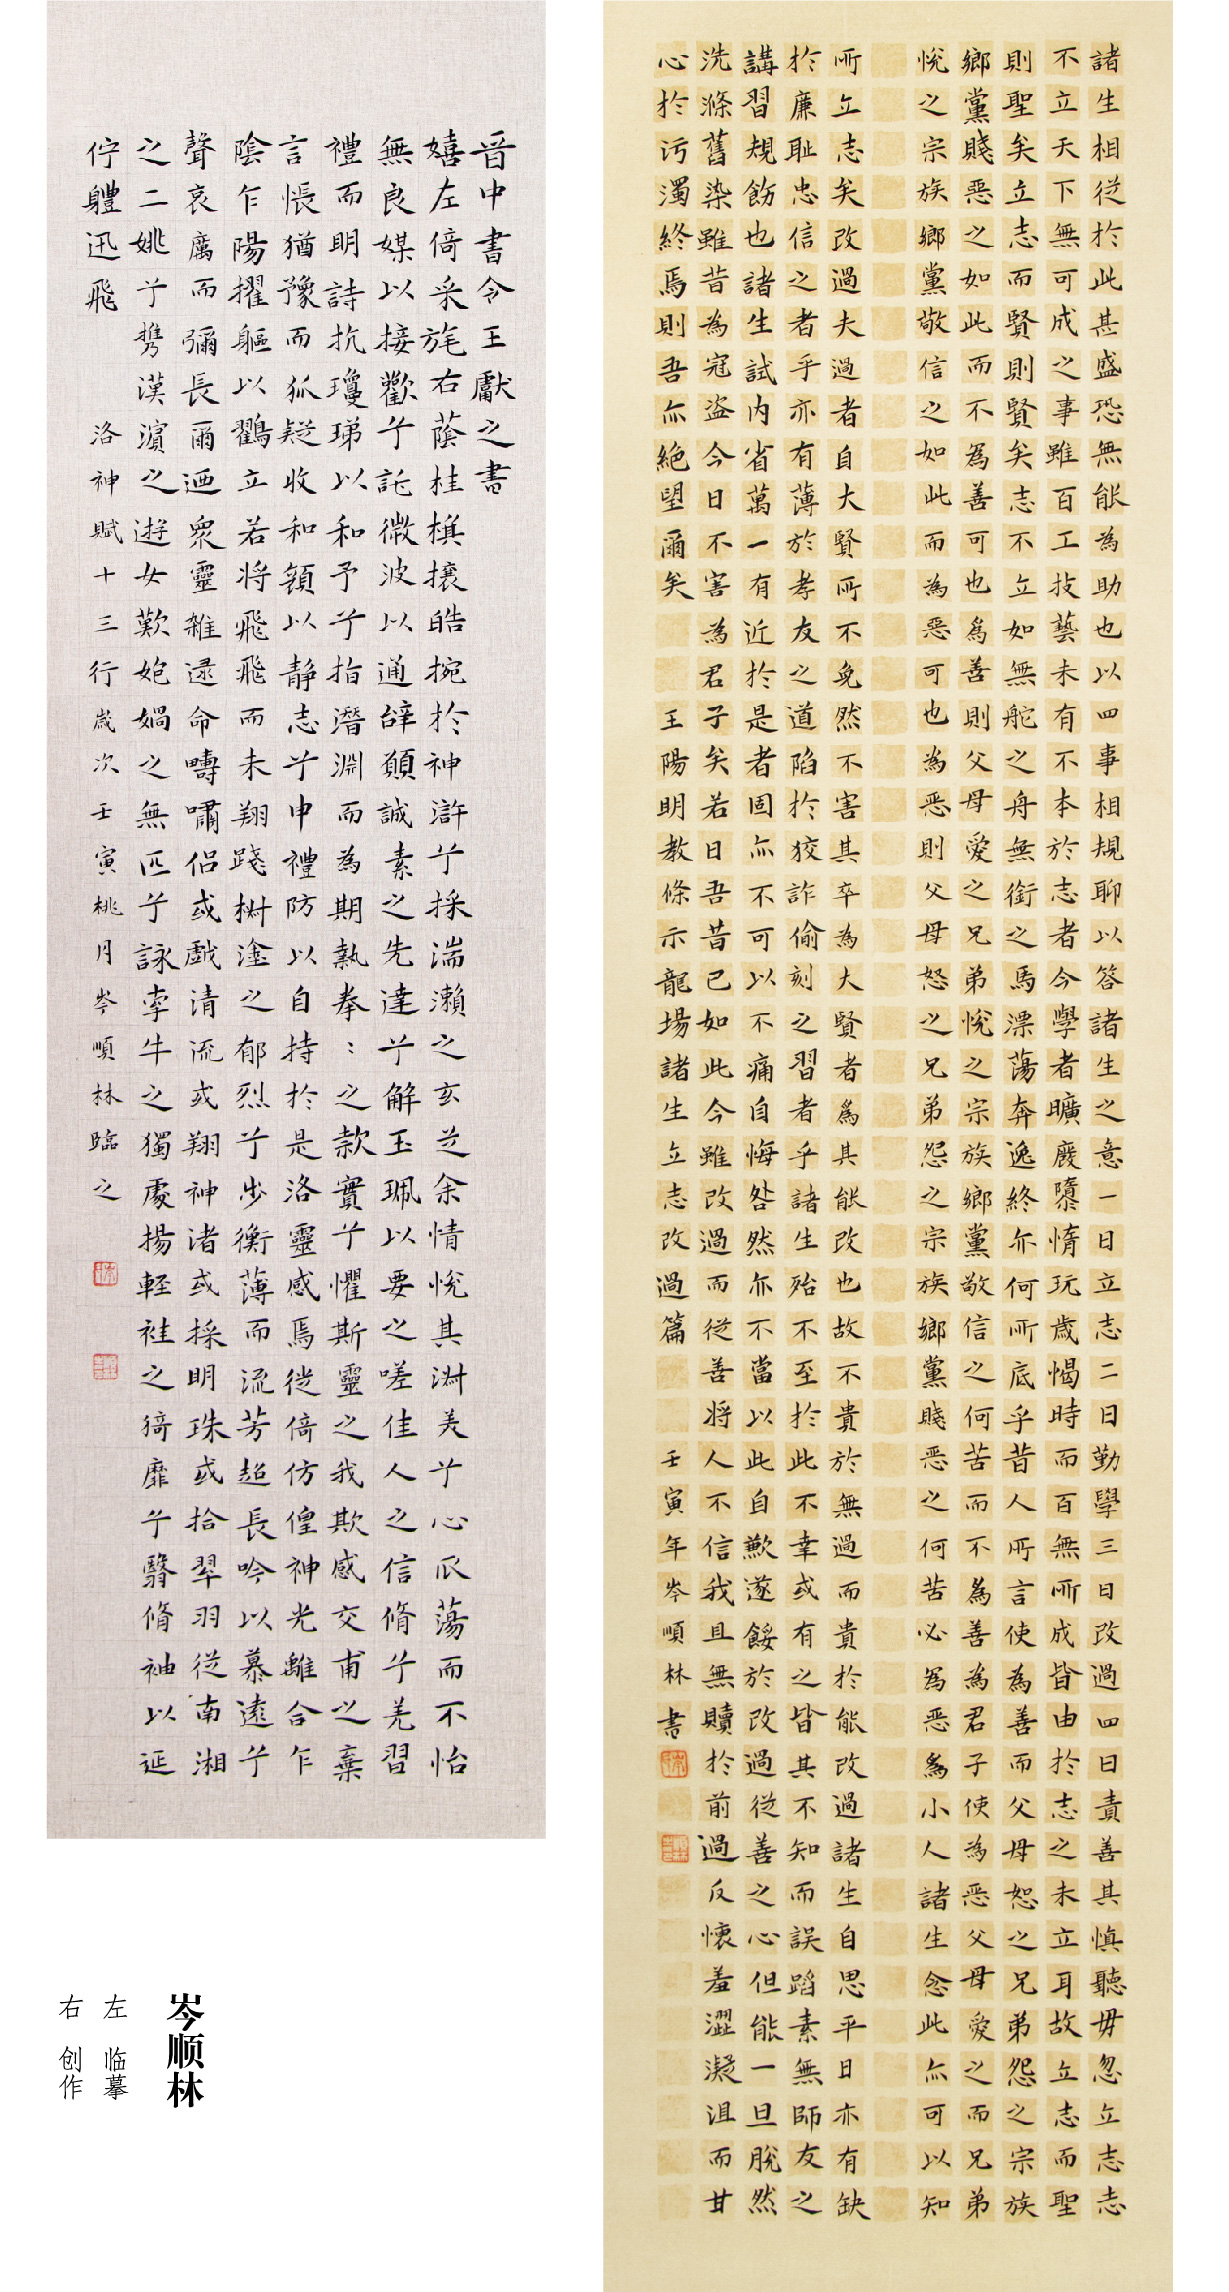 諸生相從於此甚盛恐無能為助也以四事相規聊以答諸生之意一日立志二日勤學三日改過四日責善其慎聽毋忽立志志
不立天下無可成之事雖百工技藝未有不本於志者今學者曠廢隳惰玩歲愒時而百無所成皆由於志之未立耳故立志而聖
則聖矣立志而賢則賢矣志不立如無舵之舟無銜之馬漂蕩奔逸終亦何所底乎昔人所言使為善而父母恕之兄弟怨之宗族
鄉黨賤惡之如此而不為善可也為善則父母愛之兄弟悅之宗族鄉黨敬信之何苦而不為善為君子使為惡父母愛之而兄弟
悅之宗族鄉黨敬信之如此而為惡可也為惡則父母怒之兄弟怨之宗族鄉黨賤惡之何苦必為惡為小人諸生念此亦可以知
所立志矣改過夫過者自大賢所不免然不害其卒為大賢者為其能改也故不貴於無過而貴於能改過諸生自思平日亦有缺
於廉恥忠信之者乎亦有薄於孝友之道陷於狡詐偷刻之習者乎諸生殆不至於此不幸或有之皆其不知而誤蹈素無師友之
講習規飭也諸生試內省萬一有近於是者固亦不可以不痛自悔咎然亦不當以此自歉遂餒於改過從善之心但能一旦脫然
洗滌舊染雖昔為寇盜今日不害為君子矣若日吾昔已如此今雖改過而從善將人不信我且無贖於前過反懷羞澀凝沮而甘
心於污濁終焉則吾亦絕望爾矣 王陽明教條示龍場諸生立志改過篇 壬寅年岑順林書
晉中書令王獻之書
嬉左倚采旄右蔭桂旗攘皓捥於神滸兮採湍瀨之玄芝余情悅其淑美兮心振蕩而不怡
無良媒以接歡兮託微波以通辭願誠素之先達兮解玉珮以要之嗟佳人之信脩兮羌習
禮而明詩抗瓊珶以和予兮指潛淵而為期執拳〻之款實兮懼斯靈之我欺感交甫之棄
言悵猶豫而狐疑收和顏以靜志兮申禮防以自持於是洛靈感焉徙倚仿偟神光離合乍
陰乍陽擢軀以鶴立若將飛飛而未翔踐椒塗之郁烈兮步衡薄而流芳超長吟以慕遠兮
聲哀厲而彌長爾迺眾靈雜遝命疇嘯侶或戲清流或翔神渚或採明珠或拾翠羽從南湘
之二姚兮攜漢濱之遊女歎匏媧之無匹兮詠牽牛之獨處揚輕袿之猗靡兮翳脩袖以延
佇體迅飛 洛神賦十三行歲次壬寅桃月岑順林臨之
岑顺林
左 临摹
右 创作